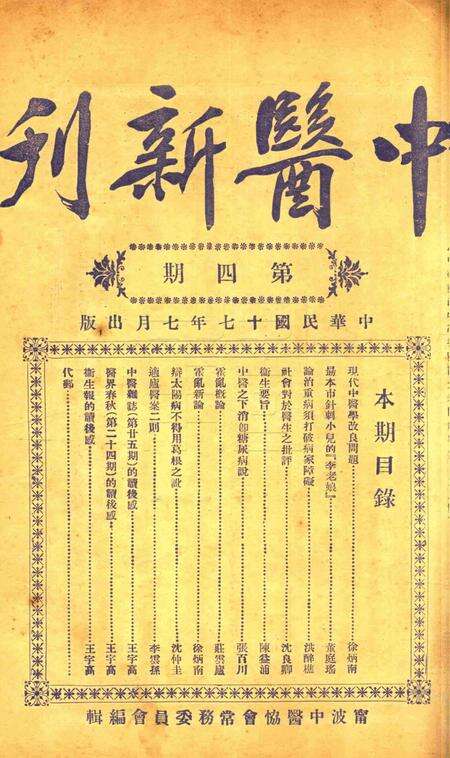 中醫新刊
第四期
中華民國十七年七月出版
本期目錄
現代中醫學改良問題 徐炳南
爲本市針刺小兒的『李老娘』 董庭瑤
論治重病須打破病家障礙 洪醉樵
社會對於醫生之批評 沈良卿
衞生要旨 陳益浦
中醫之下消卽糖尿病說 張百川
霍亂概論 莊雲廬
霍亂新論 徐炳南
辯太陽病不得用葛根之訛 沈仲圭
適廬醫案二則 李雲孫
中醫雜誌(第廿五期)的讀後感 王宇高
醫界春秋(第二十四期)的讀後感 王宇高
衞生報的讀後感 王宇高
代郵
甯波中醫協會常務委員會編輯